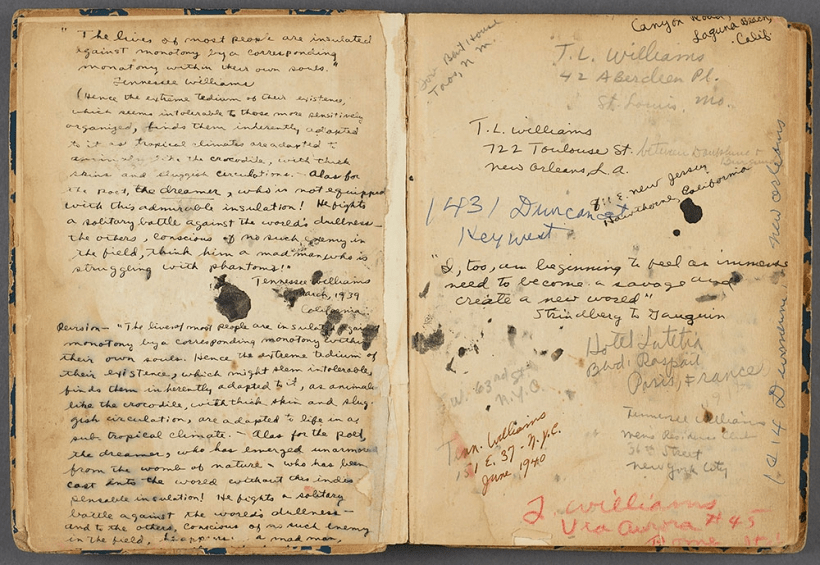 "The lives of most people are insulated
against monotony by a corresponding
monotony within their own souls."
Tennessee Williams
(Hence the extreme tedium of their existence,
which seems intolerable to those more sensitively
organized, finds them inherently adapted
to it as tropical climates are adapted to
the crocodile, with thick
skins and sluggish circulations. - Alas for
the poet, the dreamer, who is not equipped
with this admirable insulation! He fights
a solitary battle against the world's dullness -
the others, conscious of no such enemy in
the field, think him a mad man who is
struggling with phantoms!"
Tennessee Williams
March, 1939
California
Revision - "The lives of most people are insulated against
monotony by a corresponding monotony within
their own souls. Hence the extreme tedium of
their existence, which might seem intolerable,
finds them inherently adapted to it, as animals
like the crocodile, with thick skin and slug-
gish circulation, are adapted to life in a
sub tropical climate. - Alas for the poet,
the dreamer, who has emerged unarmored
from the womb of nature - who has been
cast into the world without this indis
pensable insulation! He fights a solitary
battle against the world's dullness -
and to the others, conscious of no such enemy
in the field, he appears a mad man,
Taos, N.M.
Canyon Road,
Laguna Beach,
Calif.
T.L. Williams
42 Aberdeen Pl.
St. Louis, Mo.
T.L. Williams
722 Toulouse St. between Dauphine &
New Orleans, La.
811 E. New Jersey
Hawthorne, California
1431 Duncan St
Key West
"I, too, am beginning to feel an immense
need to become a savage and
create a new world"
Strindberg to Gauguin
Hotel Lutetia
Blvd. Raspail
Paris, France
W. 63rd St.
N.Y.C.
Tennessee Williams
Mens Residence Club
56th Street
New York City
Tenn. Williams
151 E. 37 - N.Y.C.
June 1940
T. Williams
Via Aurora # 45
Rome
1014 Dumaine, New Orleans